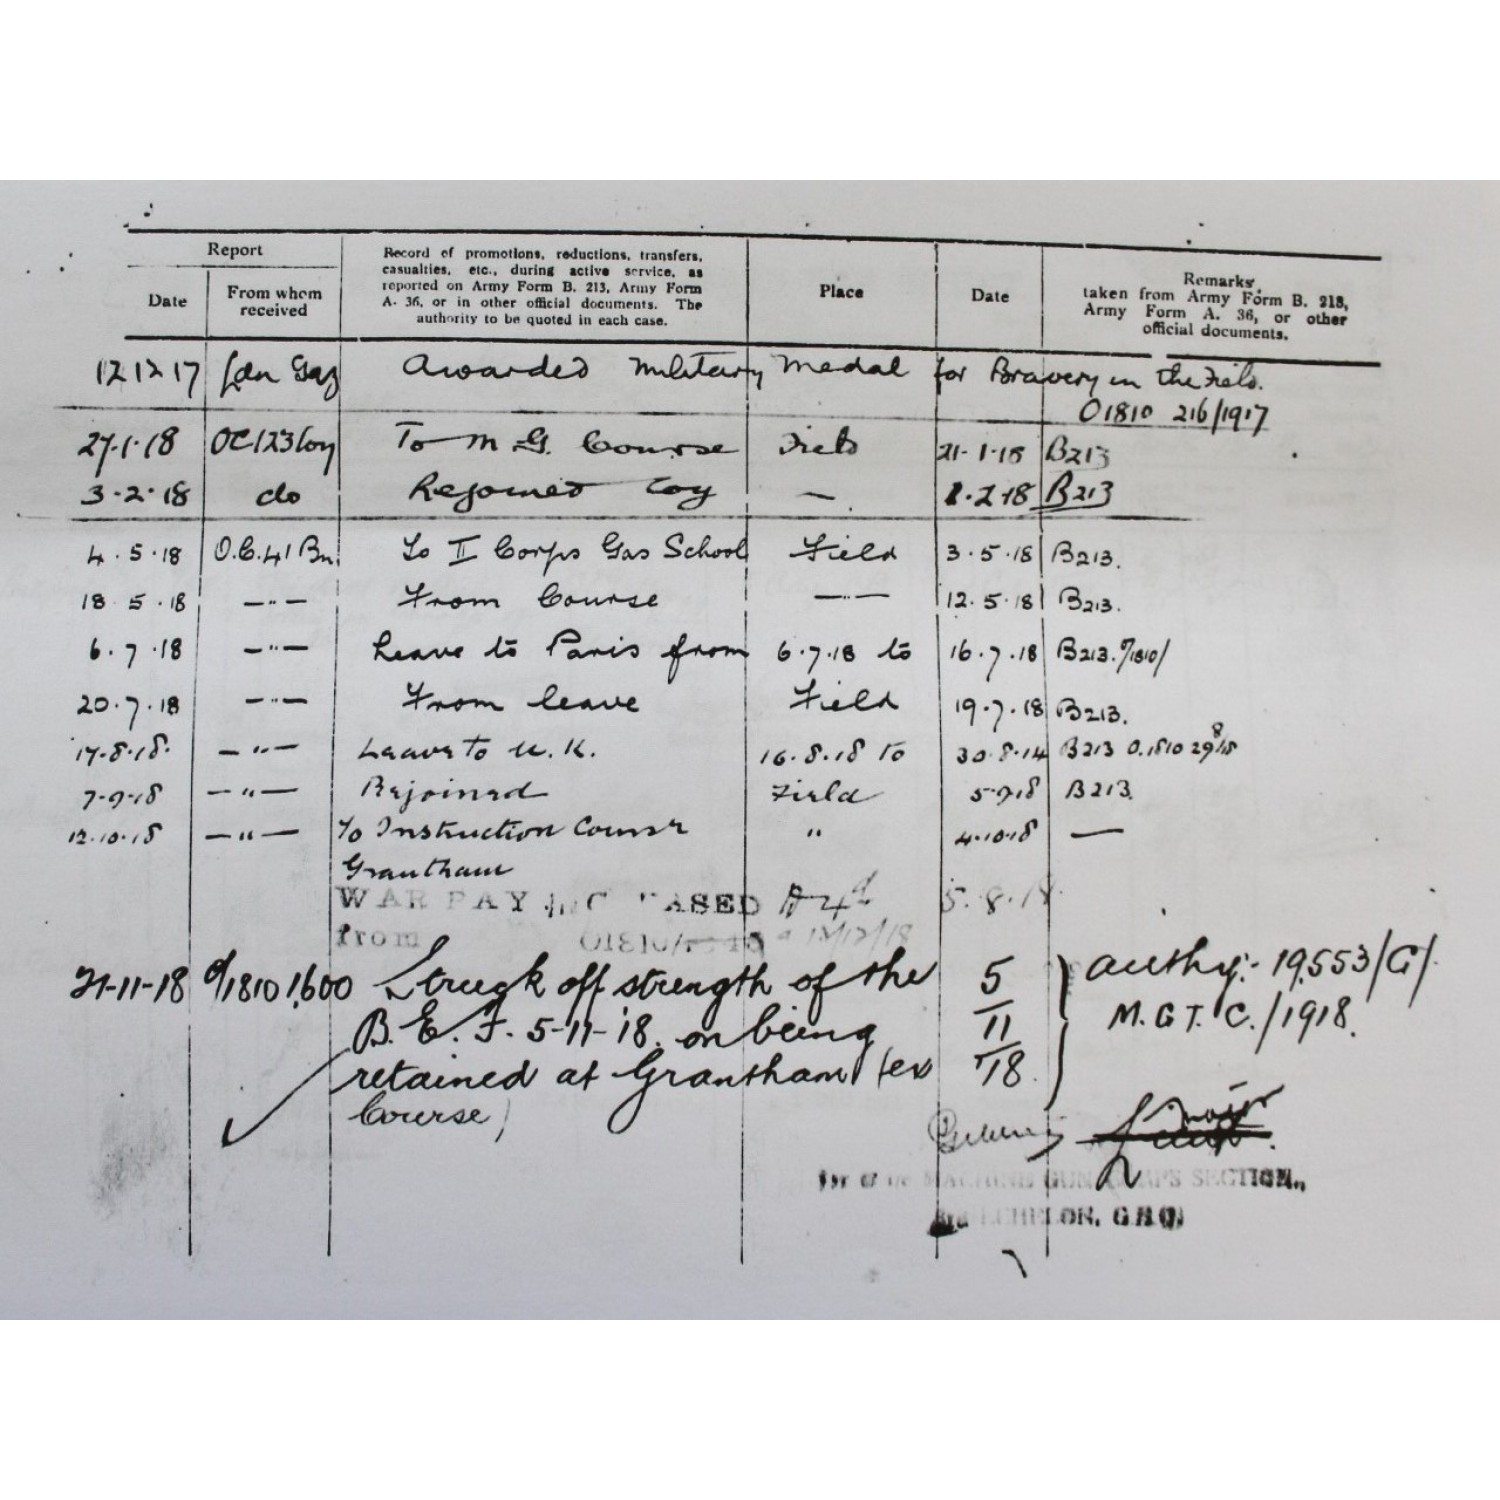 Report
Record of promotions, reductions, transfers, casualties, etc., during active service, as reported on Army Form B. 213, Army Form A. 36, or in other official documents. The authority to be quoted in each case.
Place
Date
Remarks taken from Army Form B. 213, Army Form A. 36, or other official documents.
Date
From whom received
12 12 17 Lon Gaz Awarded Military Medal for Bravery in the Field.
O1810 216/1917
27.1.18 OC 123 Coy To M.G. Course Field 21-1-18 B213
3.2.18 do Rejoined Coy — 1.2.18 B213
4.5.18 O.C. 41 Bn. To II Corps Gas School Field 3.5.18 B213.
18 5.18 —"— From Course —"— 12.5.18 B213.
6.7.18 —"— Leave to Paris from 6.7.18 to 16.7.18 B213. O/1810/
20.7.18 —"— From leave Field 19.7.18 B213.
17.8.18. —"— Leave to U.K. 16.8.18 to 30.8.14 B213 O.1810 29 8/18
7-9-18 —"— Rejoined Field 5.9.18 B213.
12.10.18 —"— To Instruction Course " 4.10.18 —
Grantham
WAR PAY INC ASED 4d 5.8.18
from O1810/ 12/18
21-11-18 O/1810 1,600 Struck off strength of the 5/11/18 Authy:- 19,553/G/
B.E.F. 5-11-18. on being M.G.T.C./1918.
retained at Grantham (ex
Course)
Major
Lieut.
MACHINE GUN CORPS SECTION.,
3rd ECHELON, G.H.Q.